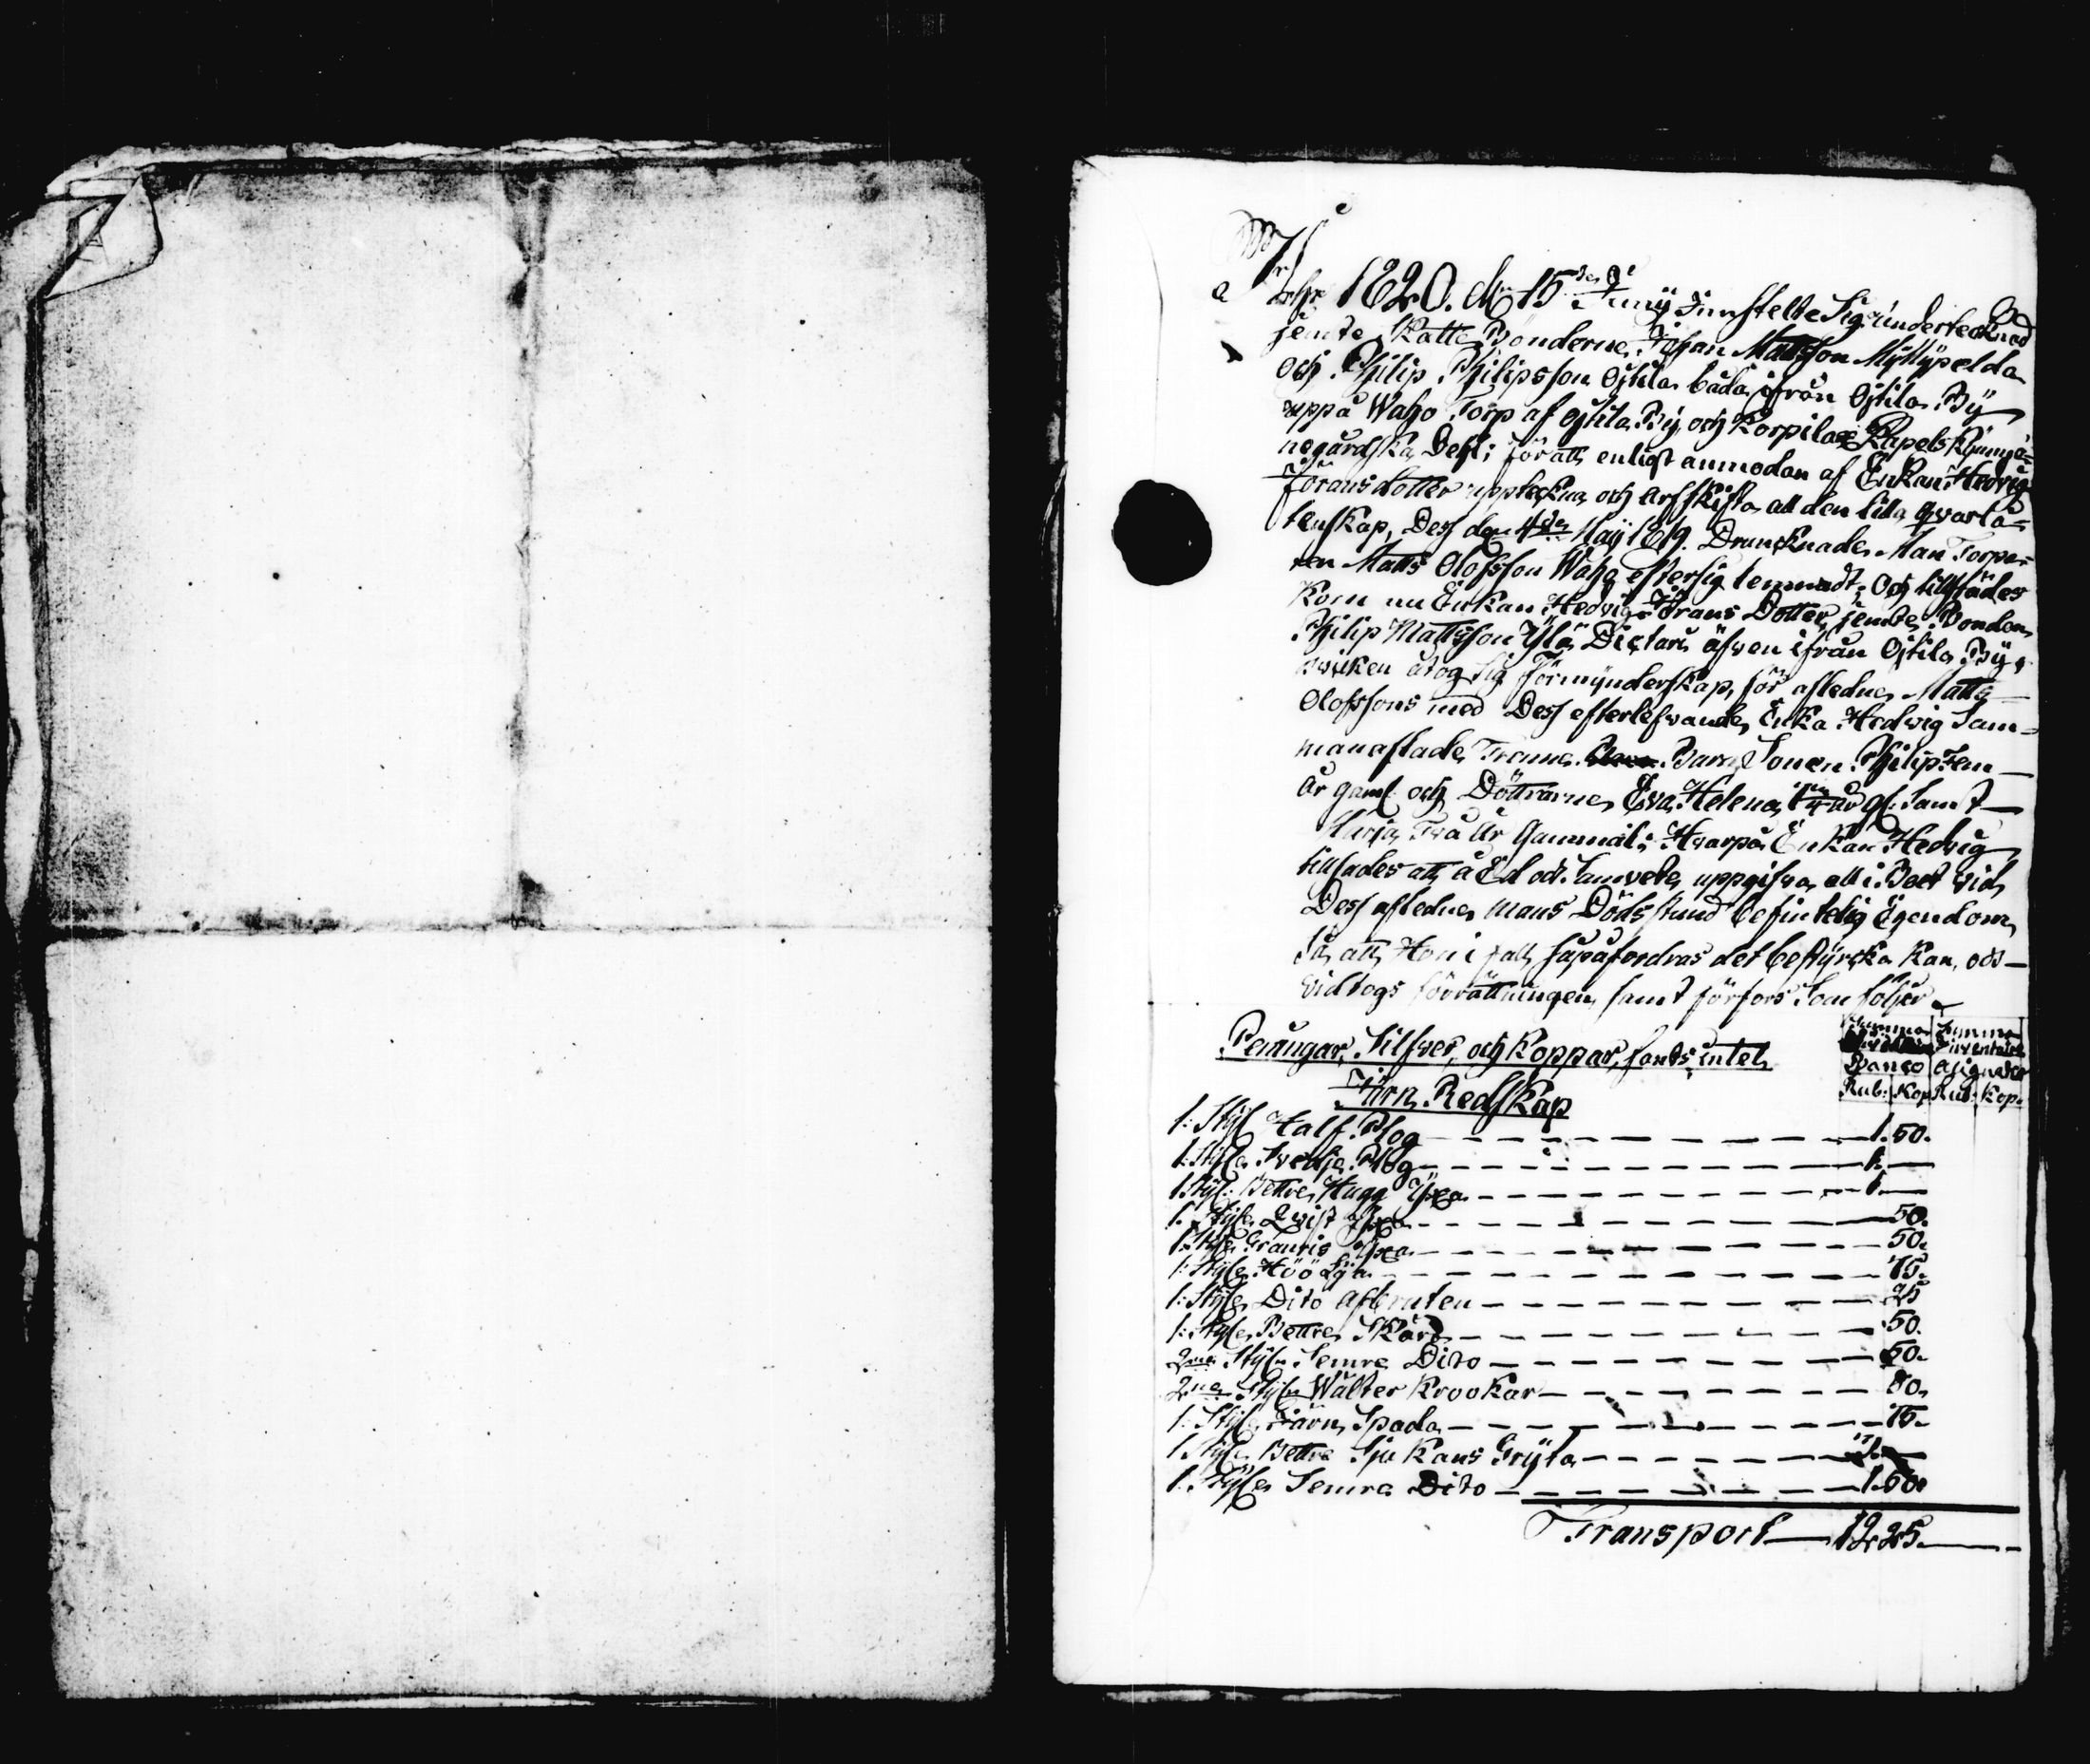 Åhr 1820. d. 15de Junij Innstelte Sig undertecknad
jemte Skatte Bönderne, Johan Mattsson Myllypelda
och Philip Philipsson Ojtila båda ifrån Ojtila By
uppå Waho Torp af Ojtila By, och Korpilax Kapels
negårdska Deel; för att enligt anmodan af Enkan Hedvig
Jöransdotter uppteckna och arfskifta all den lilla qvarlå=
tenskap, Dess den 4de Maij 1819. Drunknade Man Torpa=
ren Matts Olofsson Waho efter sig lemnadt. Och tillstädes
kom nu Enkan Hedvig Jörans Dotter, jemte Bonden
Philip Mattsson Ylä Dictari äfven ifrån Ojtila By,
hvilken åtog sig Förmynderskap, för afledne Matts
Olofssons med Dess efterlefvande Enka Hedvig Sam=
manaflade Trenne Barn, Sonen Philip Fem
år gaml. och Döttrarne, Eva Helena, år gl. Samt
Maria Två år Gammal; Hvarpå Enkan Hedvig
tillsades att å Ed och Samvete uppgifva all i Boet vid
Dess afledne mans Dödsstund befintelig Egendom,
Så, att Hon i fall så påfordras det bestyrcka kan, och
vidtogs förrättningen, samt förfors Som följer
Penningar, Silfver, och Koppar, fants intet
Summa Summa
Inventarie
Banco Asignater
Rub: Kop Rub: Kop.
Järn Redskap
1: Styck Half Plog 1. 50.
1: Styck Svedje Plog 1.
1 Styck: Bettre Hugg Yxa 1.
1. Styck Qvist Yxa 50.
1: Styck Yxa 50.
1: Styck Höö Lÿa 75.
1: Styck Dito afbruten 25
1: Styck Bettre Skära 50.
2ne Styck Semre Dito 50.
2ne Styck Walter Krookar 80.
1: Styck Järn Spada 75.
1 Styck Bettre Sju Kans Gryta
1: Styck Semre Dito 1. 50.
Transport 12. 25.